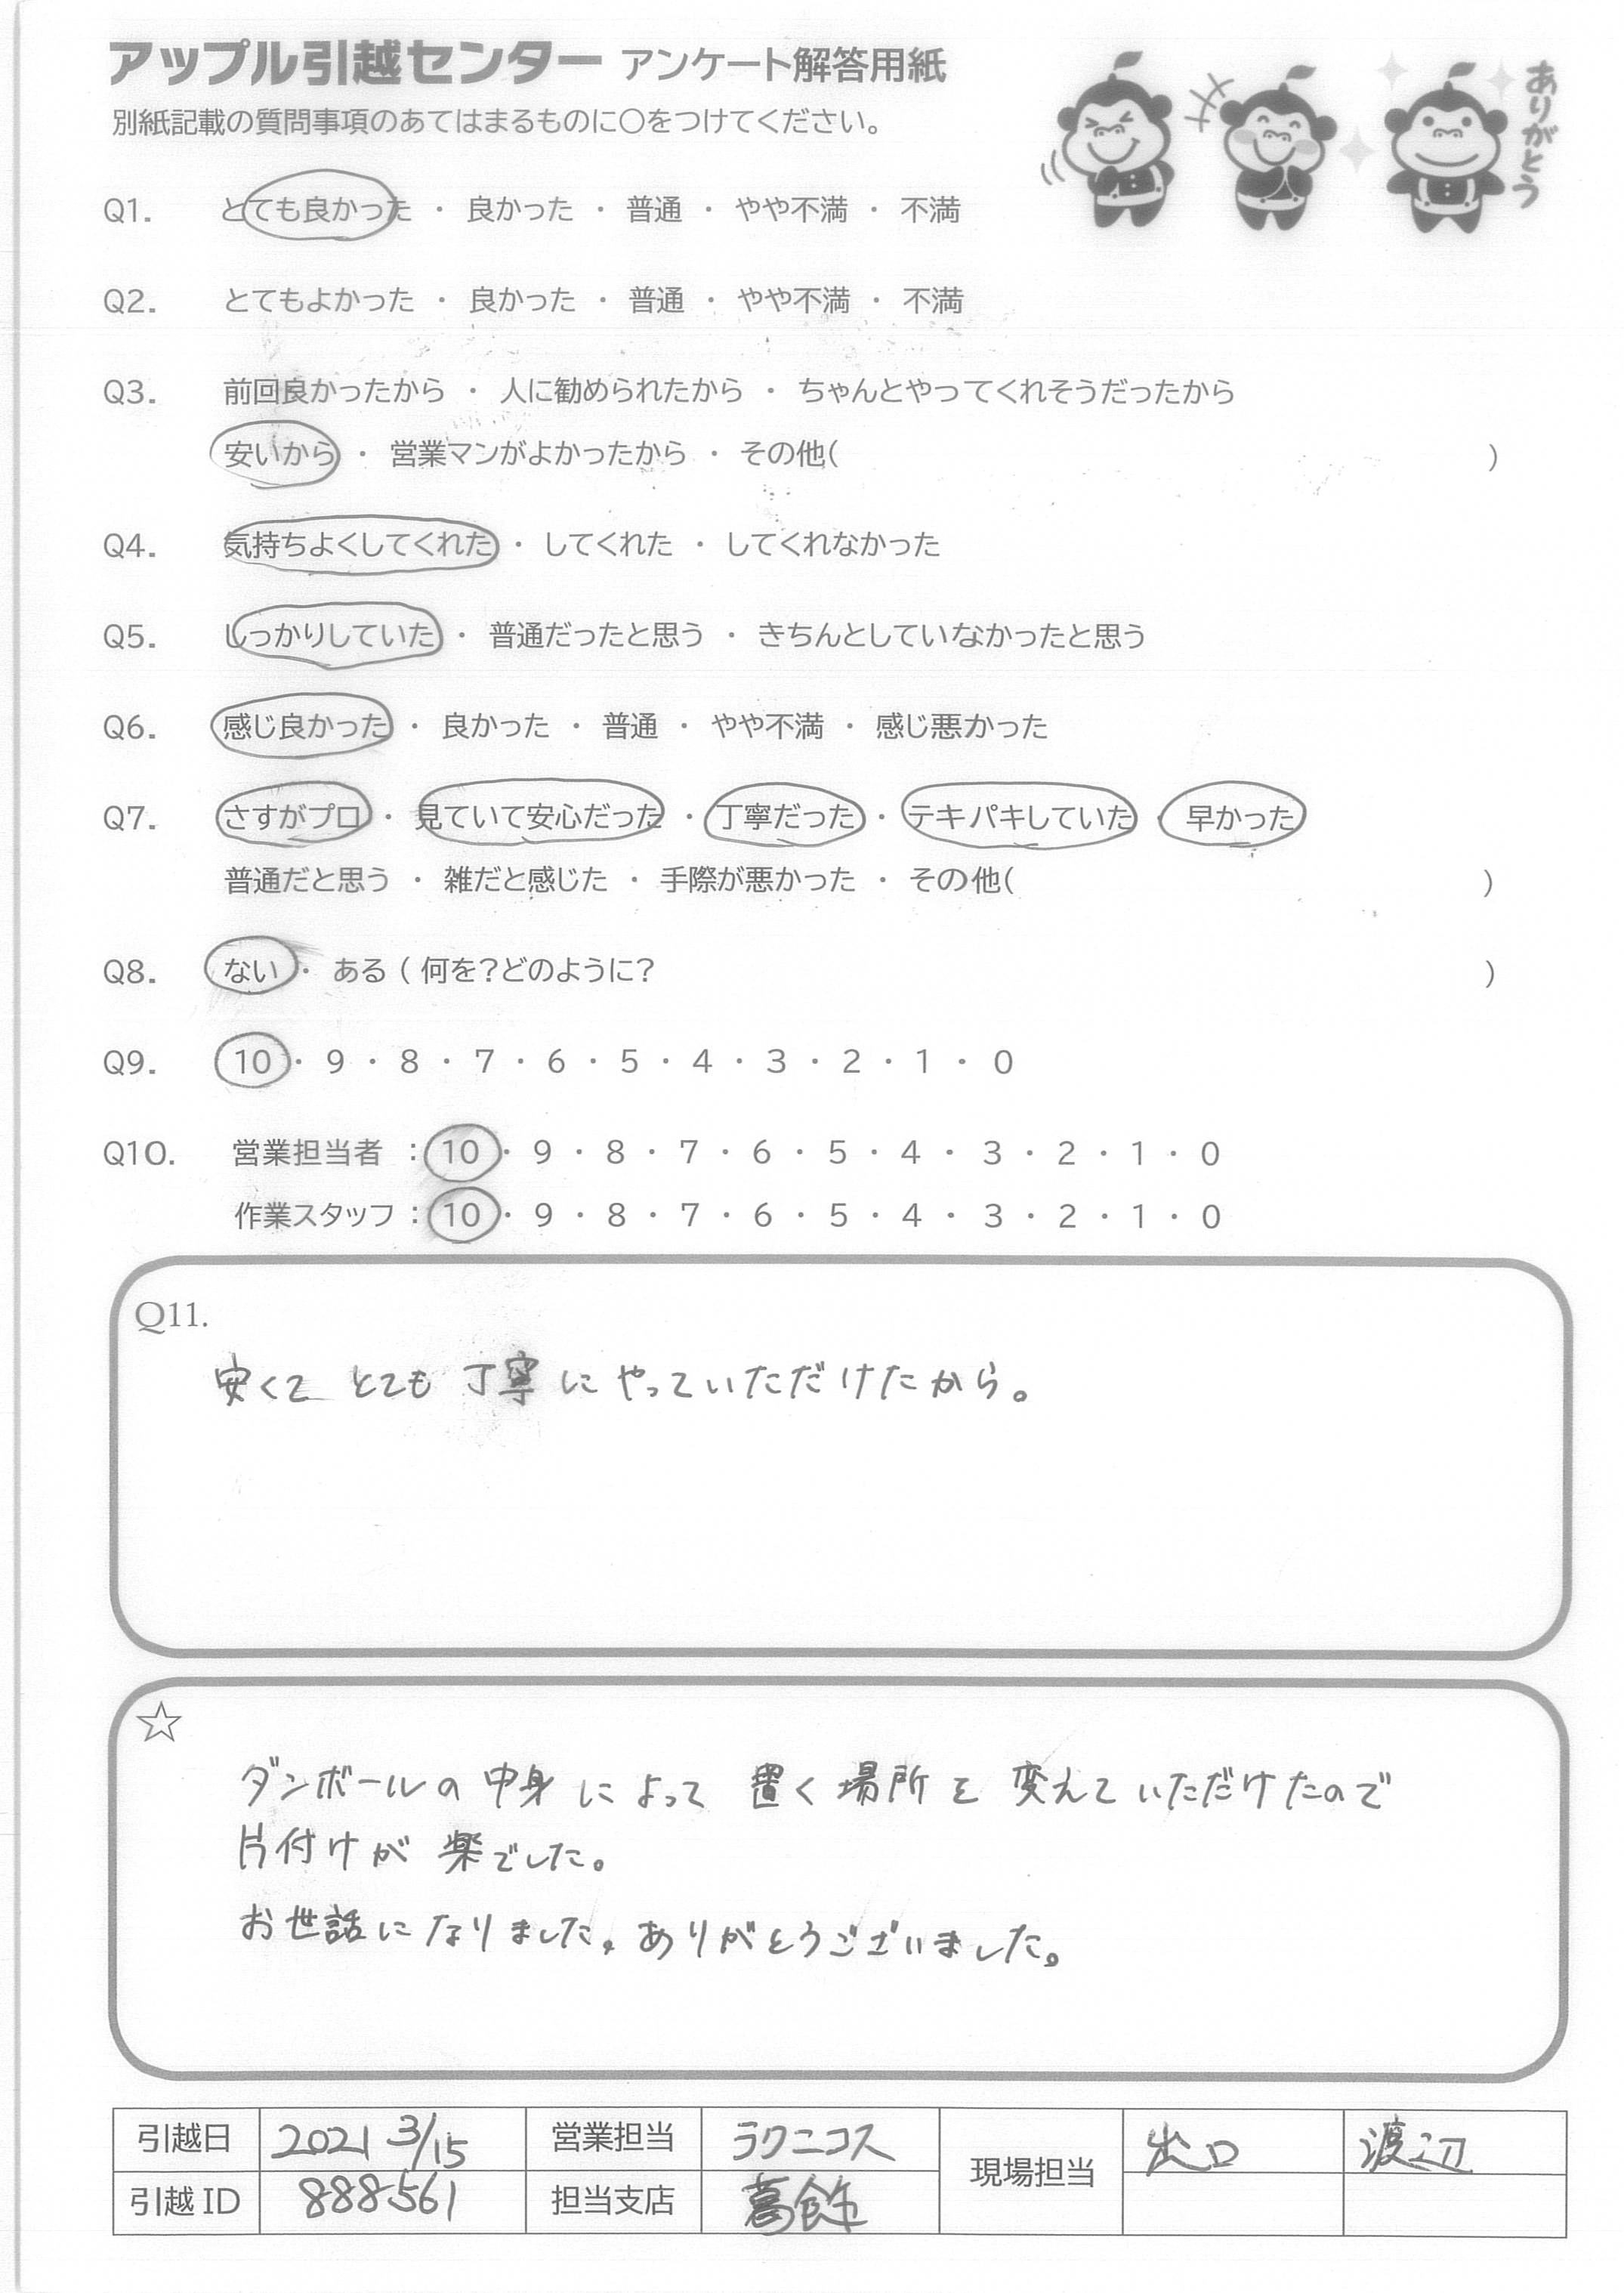 アップル引越センター アンケート解答用紙
別紙記載の質問事項のあてはまるものに〇をつけてください。
ありがとう
Q1. とても良かった ・ 良かった ・ 普通 ・ やや不満 ・ 不満
Q2. とてもよかった ・ 良かった ・ 普通 ・ やや不満 ・ 不満
Q3. 前回良かったから ・ 人に勧められたから ・ ちゃんとやってくれそうだったから
安いから ・ 営業マンがよかったから ・ その他( )
Q4. 気持ちよくしてくれた ・ してくれた ・ してくれなかった
Q5. しっかりしていた ・ 普通だったと思う ・ きちんとしていなかったと思う
Q6. 感じ良かった ・ 良かった ・ 普通 ・ やや不満 ・ 感じ悪かった
Q7. さすがプロ ・ 見ていて安心だった ・ 丁寧だった ・ テキパキしていた ・ 早かった
普通だと思う ・ 雑だと感じた ・ 手際が悪かった ・ その他( )
Q8. ない ・ ある ( 何を?どのように? )
Q9. 10 ・ 9 ・ 8 ・ 7 ・ 6 ・ 5 ・ 4 ・ 3 ・ 2 ・ 1 ・ 0
Q10. 営業担当者 : 10 ・ 9 ・ 8 ・ 7 ・ 6 ・ 5 ・ 4 ・ 3 ・ 2 ・ 1 ・ 0
作業スタッフ : 10 ・ 9 ・ 8 ・ 7 ・ 6 ・ 5 ・ 4 ・ 3 ・ 2 ・ 1 ・ 0
Q11.
安くて とても 丁寧 に やっていただけたから。
☆
ダンボールの 中身 によって 置く 場所 を 変えて いただけたので
片付けが 楽でした。
お世話に なりました。ありがとうございました。
引越日 2021 3/15 営業担当 ラクニコス 現場担当 出口 渡辺
引越 ID 888561 担当支店 葛飾